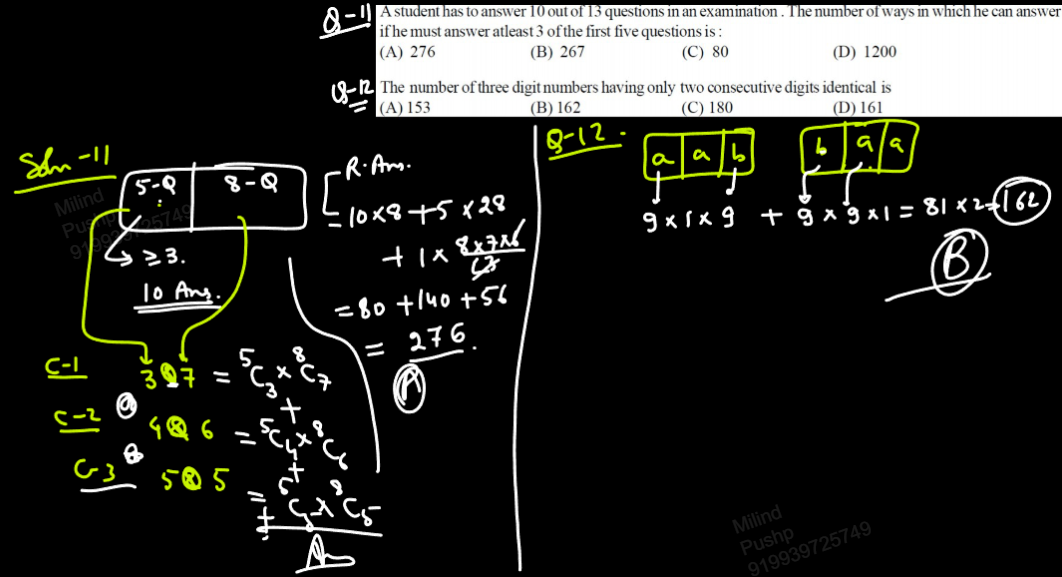 Q-11 A student has to answer 10 out of 13 questions in an examination . The number of ways in which he can answer
if he must answer atleast 3 of the first five questions is :
(A) 276 (B) 267 (C) 80 (D) 1200
Q-12 The number of three digit numbers having only two consecutive digits identical is
(A) 153 (B) 162 (C) 180 (D) 161
Soln-11
5-Q 8-Q
≥ 3.
10 Ans.
C-1 3Q 7 = ⁵C₃ × ⁸C₇
+
C-2 4Q 6 = ⁵C₄ × ⁸C₆
+
C-3 5Q 5 = ⁵C₅ × ⁸C₅
R. Ans.
= 10×8 + 5×28
+ 1 × 8×7×6
= 80 + 140 + 56
= 276.
(A)
Q-12.
a a b b a a
9 × 1 × 9 + 9 × 9 × 1 = 81 × 2 = 162
(B)
Milind
Pushp
919939725749
Milind
Pushp
919939725749